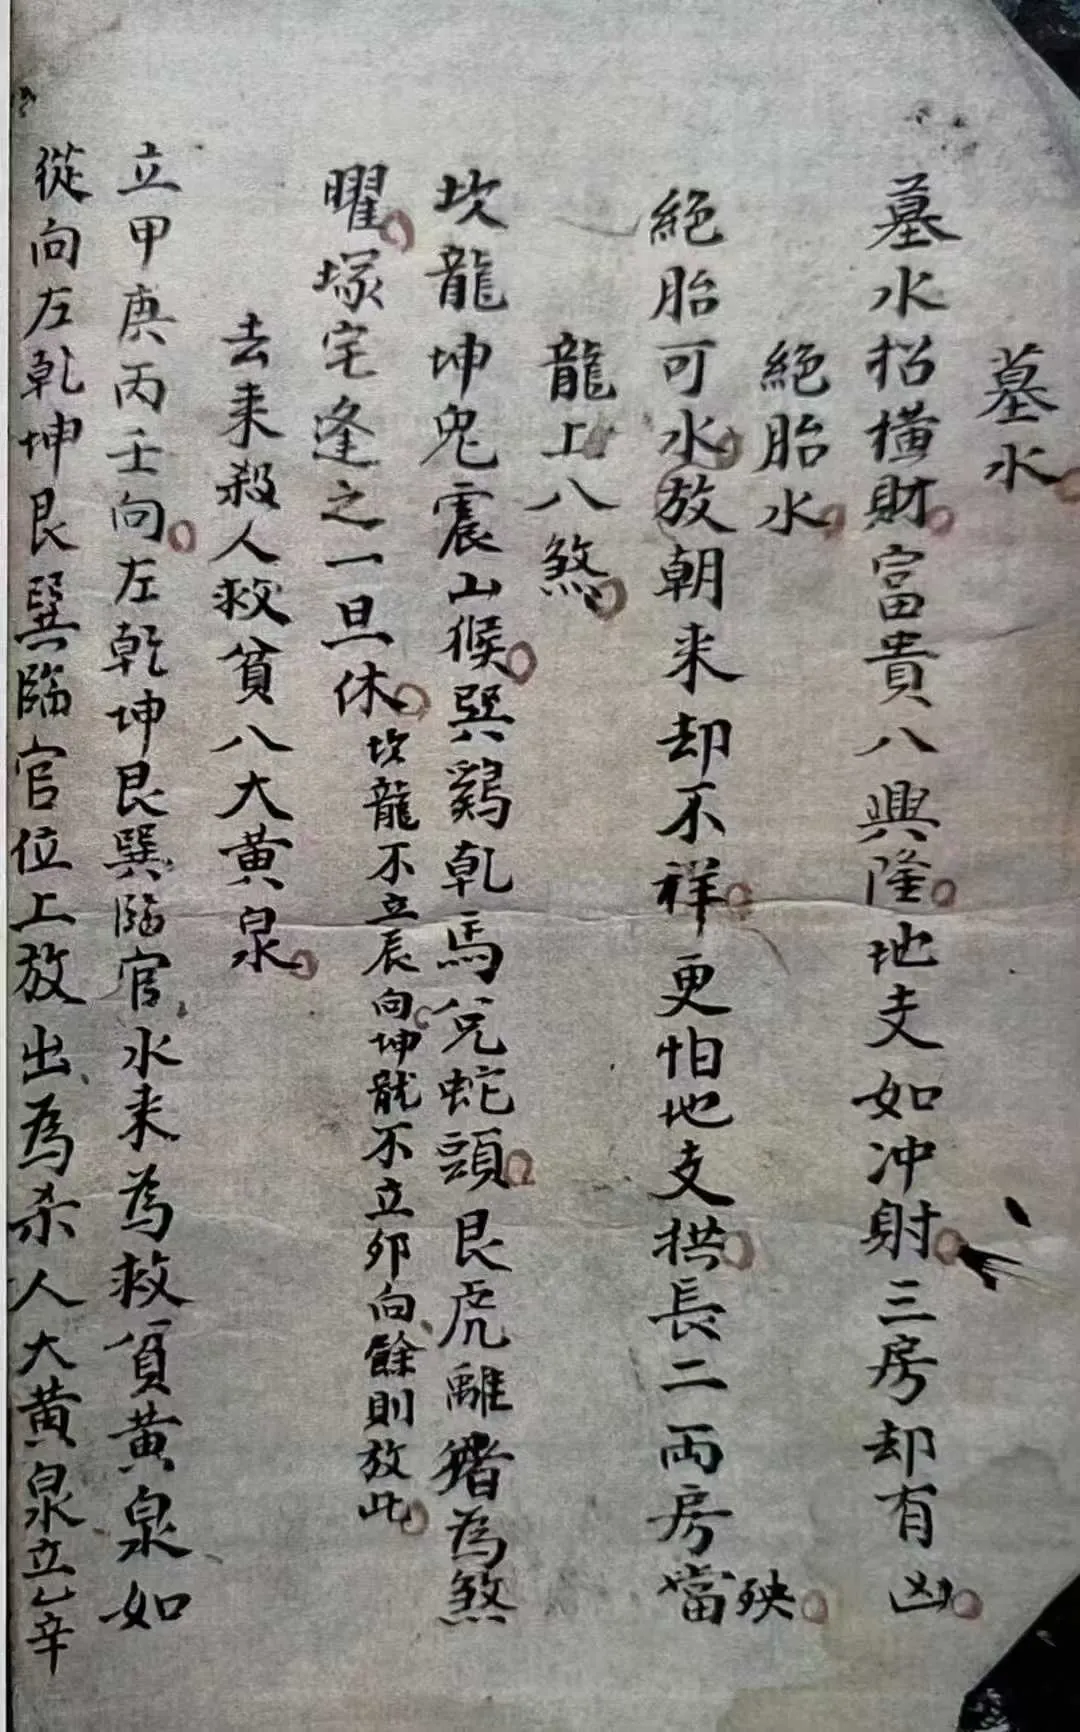 墓水
墓水招橫財富貴八興隆地支如冲射三房却有凶
絕胎水
絕胎可水放朝来却不祥更怕地支拱長二両房當殃
龍上八煞
坎龍坤兔震山猴巽鷄乾馬兌蛇頭艮虎離猪為煞
曜塚宅逢之一旦休坎龍不立辰向坤龍不立卯向餘則放此
去来殺人救貧八大黄泉
立甲庚丙壬向左乾坤艮巽臨官水来為救貧黄泉如
從向左乾坤艮巽臨官位上放出為杀人大黄泉立乙辛